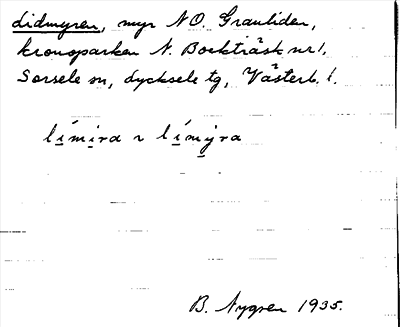 Lidmyren, myr NO. Granliden,
kronoparken N. Bockträsk nr 1,
Sorsele sn, Lycksele tg, Västerb. l.
límira ~ límyra
B. Nygren 1935.